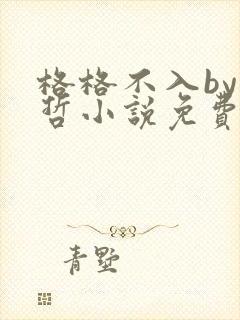 格格不入by
哲小説免費
青墅